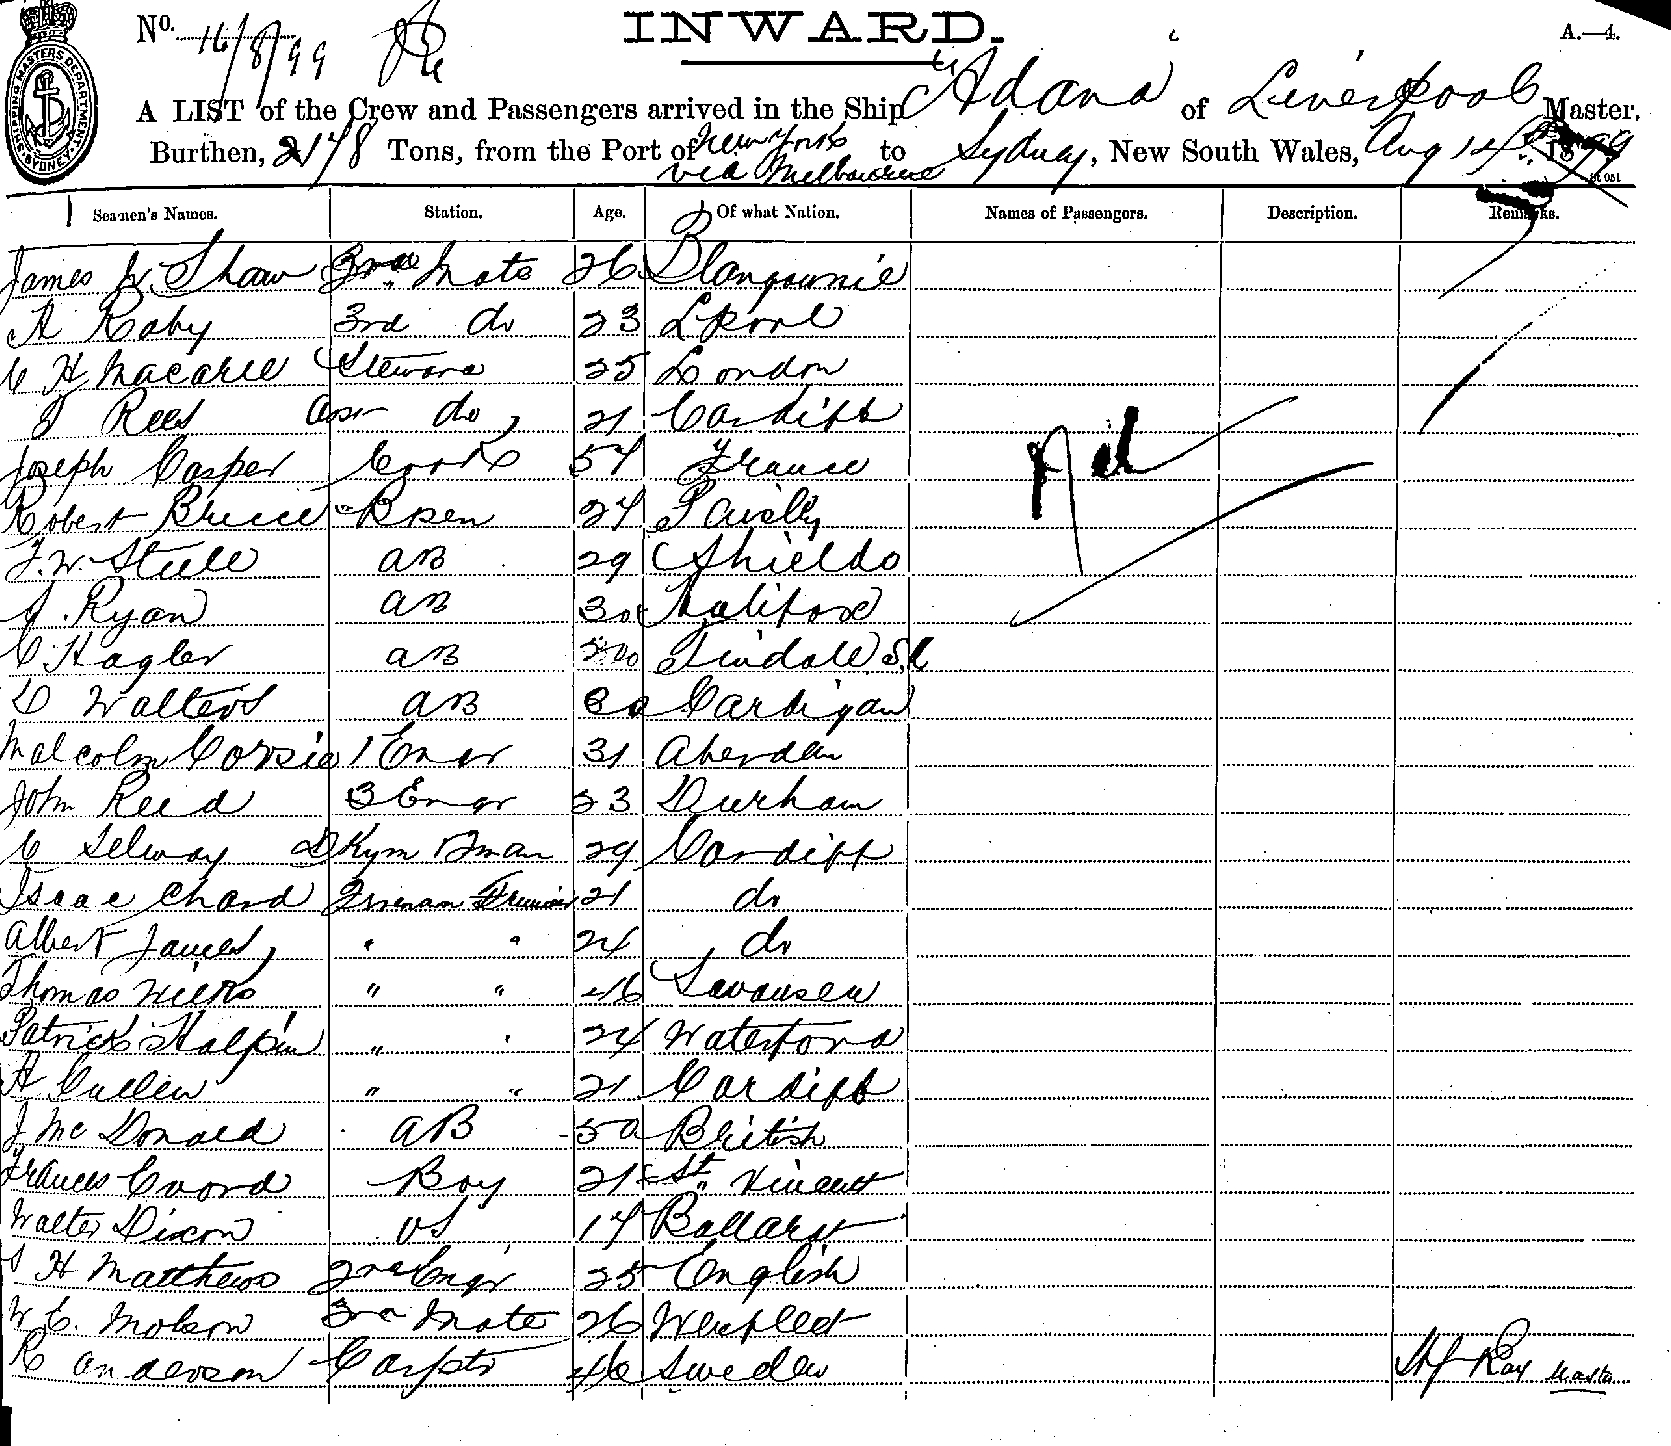 No. 16/8/99
INWARD.
A.—4.
SYDNEY SHIPPING MASTERS DEPARTMENT
A LIST of the Crew and Passengers arrived in the Ship "Adana" of Liverpool Master,
Burthen, 2178 Tons, from the Port of New York via Melbourne to Sydney, New South Wales, Aug 14th 1899
Seamen's Names. Station. Age. Of what Nation. Names of Passengers. Description. Remarks.
James W. Shaw Mate 26
A Roby 3rd do 23 Lpool
C H Macarle Steward 25 London
J Rees do 21 Cardiff
Joseph Casper Cook 54 France
Robert Bruce Bsen 24 Paisly
J. W. Steele AB 29 Shields
J. Ryan AB 30 Halifax
C Hagler AB
D Walters AB Cardigan
Malcolm Corsie 1 Engr 31 Aberdeen
John Reed 3 Engr 23 Durham
C Selway Dkymman 29 Cardiff
Isaac Chard Fireman Trimmer 21 do
Albert James " " 24 do
Thomas Wilks " " 46 Swansea
Patrick Halpin " " 24 Waterford
A Cullen " " 21 Cardiff
J McDonald AB 50 British
Frances Coord Boy 21 St Vincent
Walter Dixon OS 17 Ballarat
H Matthews 2nd Engr 25 English
W. C. Mobson Mate 26
R Anderson Carptr 46 Sweden
Nil
Ray Master